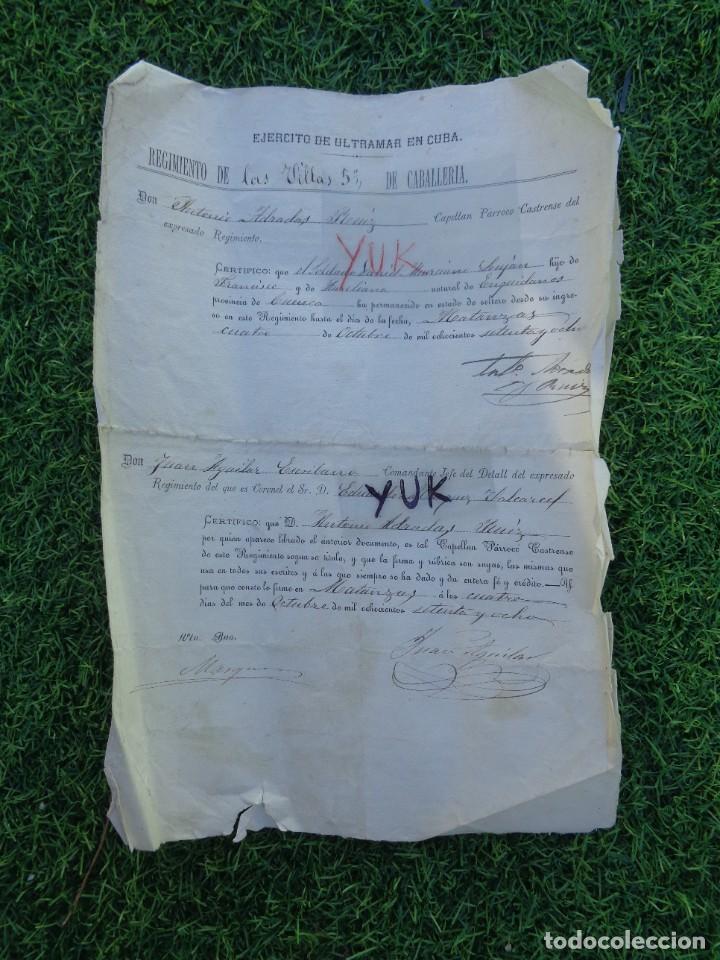 EJERCITO DE ULTRAMAR EN CUBA.
REGIMIENTO DE las Villas 5º, DE CABALLERIA.
Don Antonio Adradas Ruiz Capellan Párroco Castrense del
expresado Regimiento.
YUK
CERTIFICO: que el Soldado Daniel Luján hijo de
Francisco y de natural de Enguidanos
provincia de Cuenca ha permanecido en estado de soltero desde su ingre-
so en este Regimiento hasta el día de la fecha, Matanzas
cuatro de Octubre de mil ochocientos setenta y ocho
Ruiz
Don Juan Aguilar Comandante Jefe del Detall del expresado
Regimiento del que es Coronel el Sr. D.
YUK
CERTIFICO: que D. Antonio Adradas Ruiz
por quien aparece librado el anterior documento, es tal Capellan Párroco Castrense
de este Regimiento segun su título, y que la firma y rúbrica son suyas, las mismas que
usa en todos sus escritos y á las que siempre se ha dado y da entera fé y crédito.—Y
para que conste lo firmo en Matanzas á los cuatro
dias del mes de Octubre de mil ochocientos setenta y ocho
Vto. Bno.
Juan Aguilar
todocoleccion
todocoleccion.net